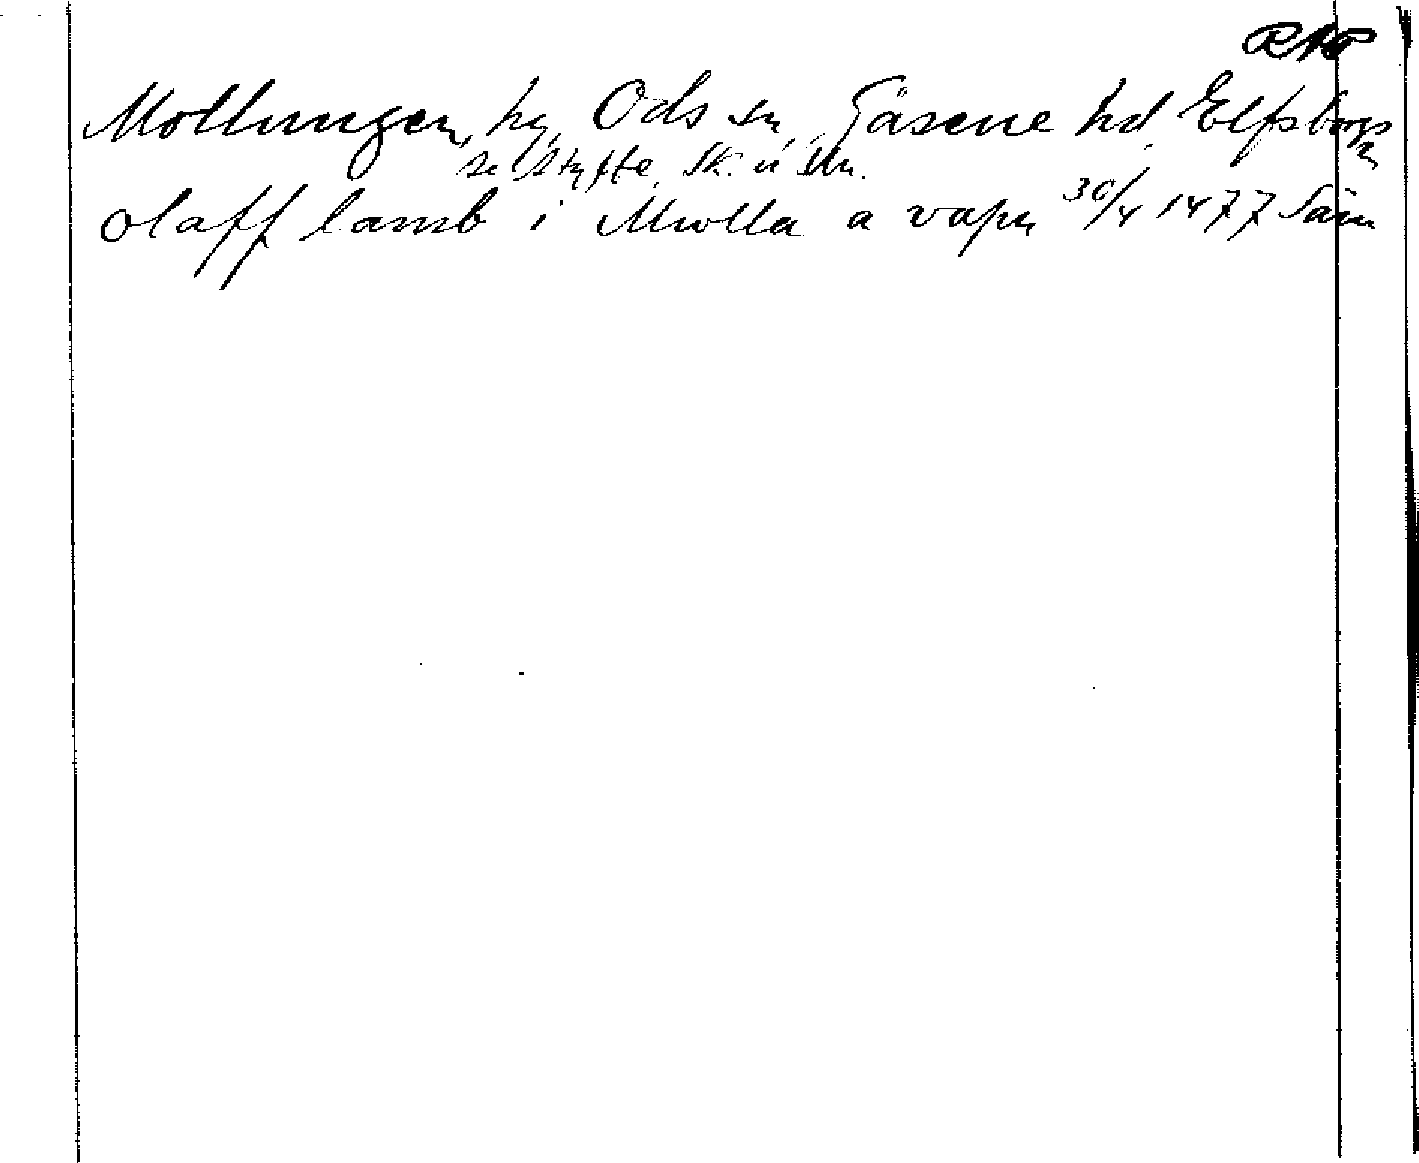 RAP
Mollungen, by, Ods sn, Gäsene hd Elfsborgs
se Styffe. Sk. u Un.
n
olaff lamb i Mwlla a vapn 30/4 1477 Säm